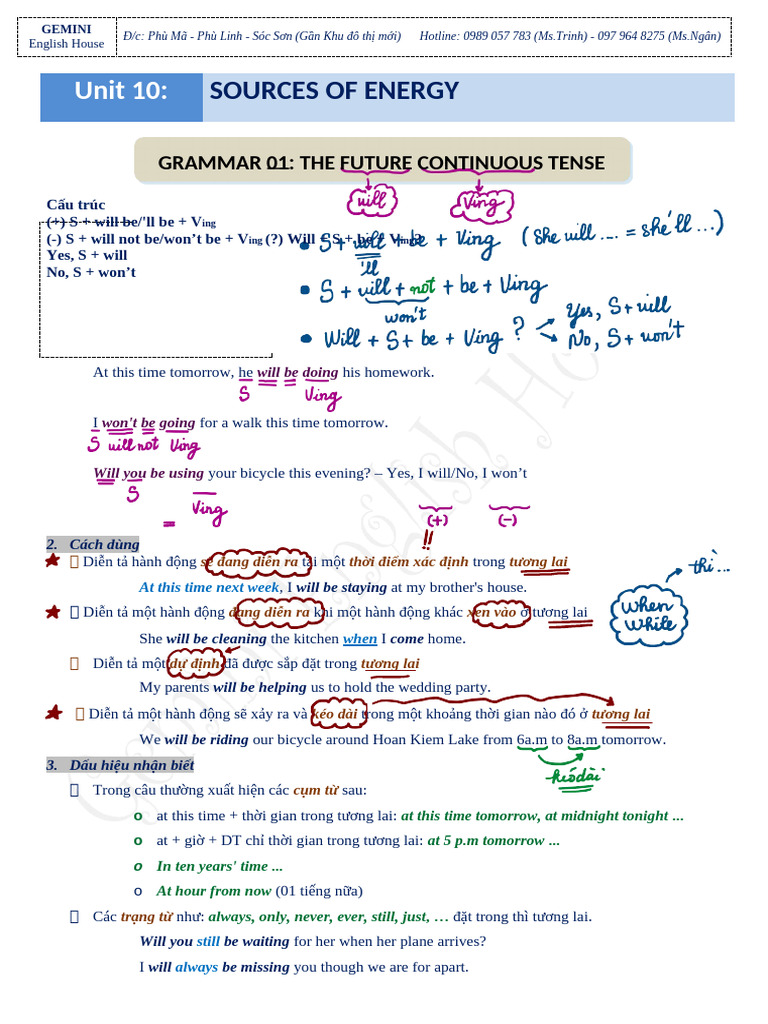 GEMINI
English House
Đ/c: Phù Mã - Phù Linh - Sóc Sơn (Gần Khu đô thị mới) Hotline: 0989 057 783 (Ms.Trinh) - 097 964 8275 (Ms.Ngân)
Unit 10: SOURCES OF ENERGY
GRAMMAR 01: THE FUTURE CONTINUOUS TENSE
will Ving
Cấu trúc
(+) S + will be/'ll be + Ving
(-) S + will not be/won't be + Ving (?) Will + S + be + Ving
Yes, S + will
No, S + won't
• S + will + be + Ving (she will ... = she'll ...)
'll
• S + will + not + be + Ving
won't
• Will + S + be + Ving ? Yes, S + will
No, S + won't
At this time tomorrow, he will be doing his homework.
S Ving
I won't be going for a walk this time tomorrow.
S will not Ving
Will you be using your bicycle this evening? – Yes, I will/No, I won't
S
Ving
(+) (-)
2. Cách dùng
!!
Diễn tả hành động sẽ đang diễn ra tại một thời điểm xác định trong tương lai
thì...
At this time next week, I will be staying at my brother's house.
Diễn tả một hành động đang diễn ra khi một hành động khác xen vào ở tương lai
when
while
She will be cleaning the kitchen when I come home.
Diễn tả một dự định đã được sắp đặt trong tương lai
My parents will be helping us to hold the wedding party.
Diễn tả một hành động sẽ xảy ra và kéo dài trong một khoảng thời gian nào đó ở tương lai
We will be riding our bicycle around Hoan Kiem Lake from 6a.m to 8a.m tomorrow.
kéo dài
3. Dấu hiệu nhận biết
Trong câu thường xuất hiện các cụm từ sau:
o at this time + thời gian trong tương lai: at this time tomorrow, at midnight tonight ...
o at + giờ + DT chỉ thời gian trong tương lai: at 5 p.m tomorrow ...
o In ten years' time ...
o At hour from now (01 tiếng nữa)
Các trạng từ như: always, only, never, ever, still, just, … đặt trong thì tương lai.
Will you still be waiting for her when her plane arrives?
I will always be missing you though we are for apart.
Gemini English House